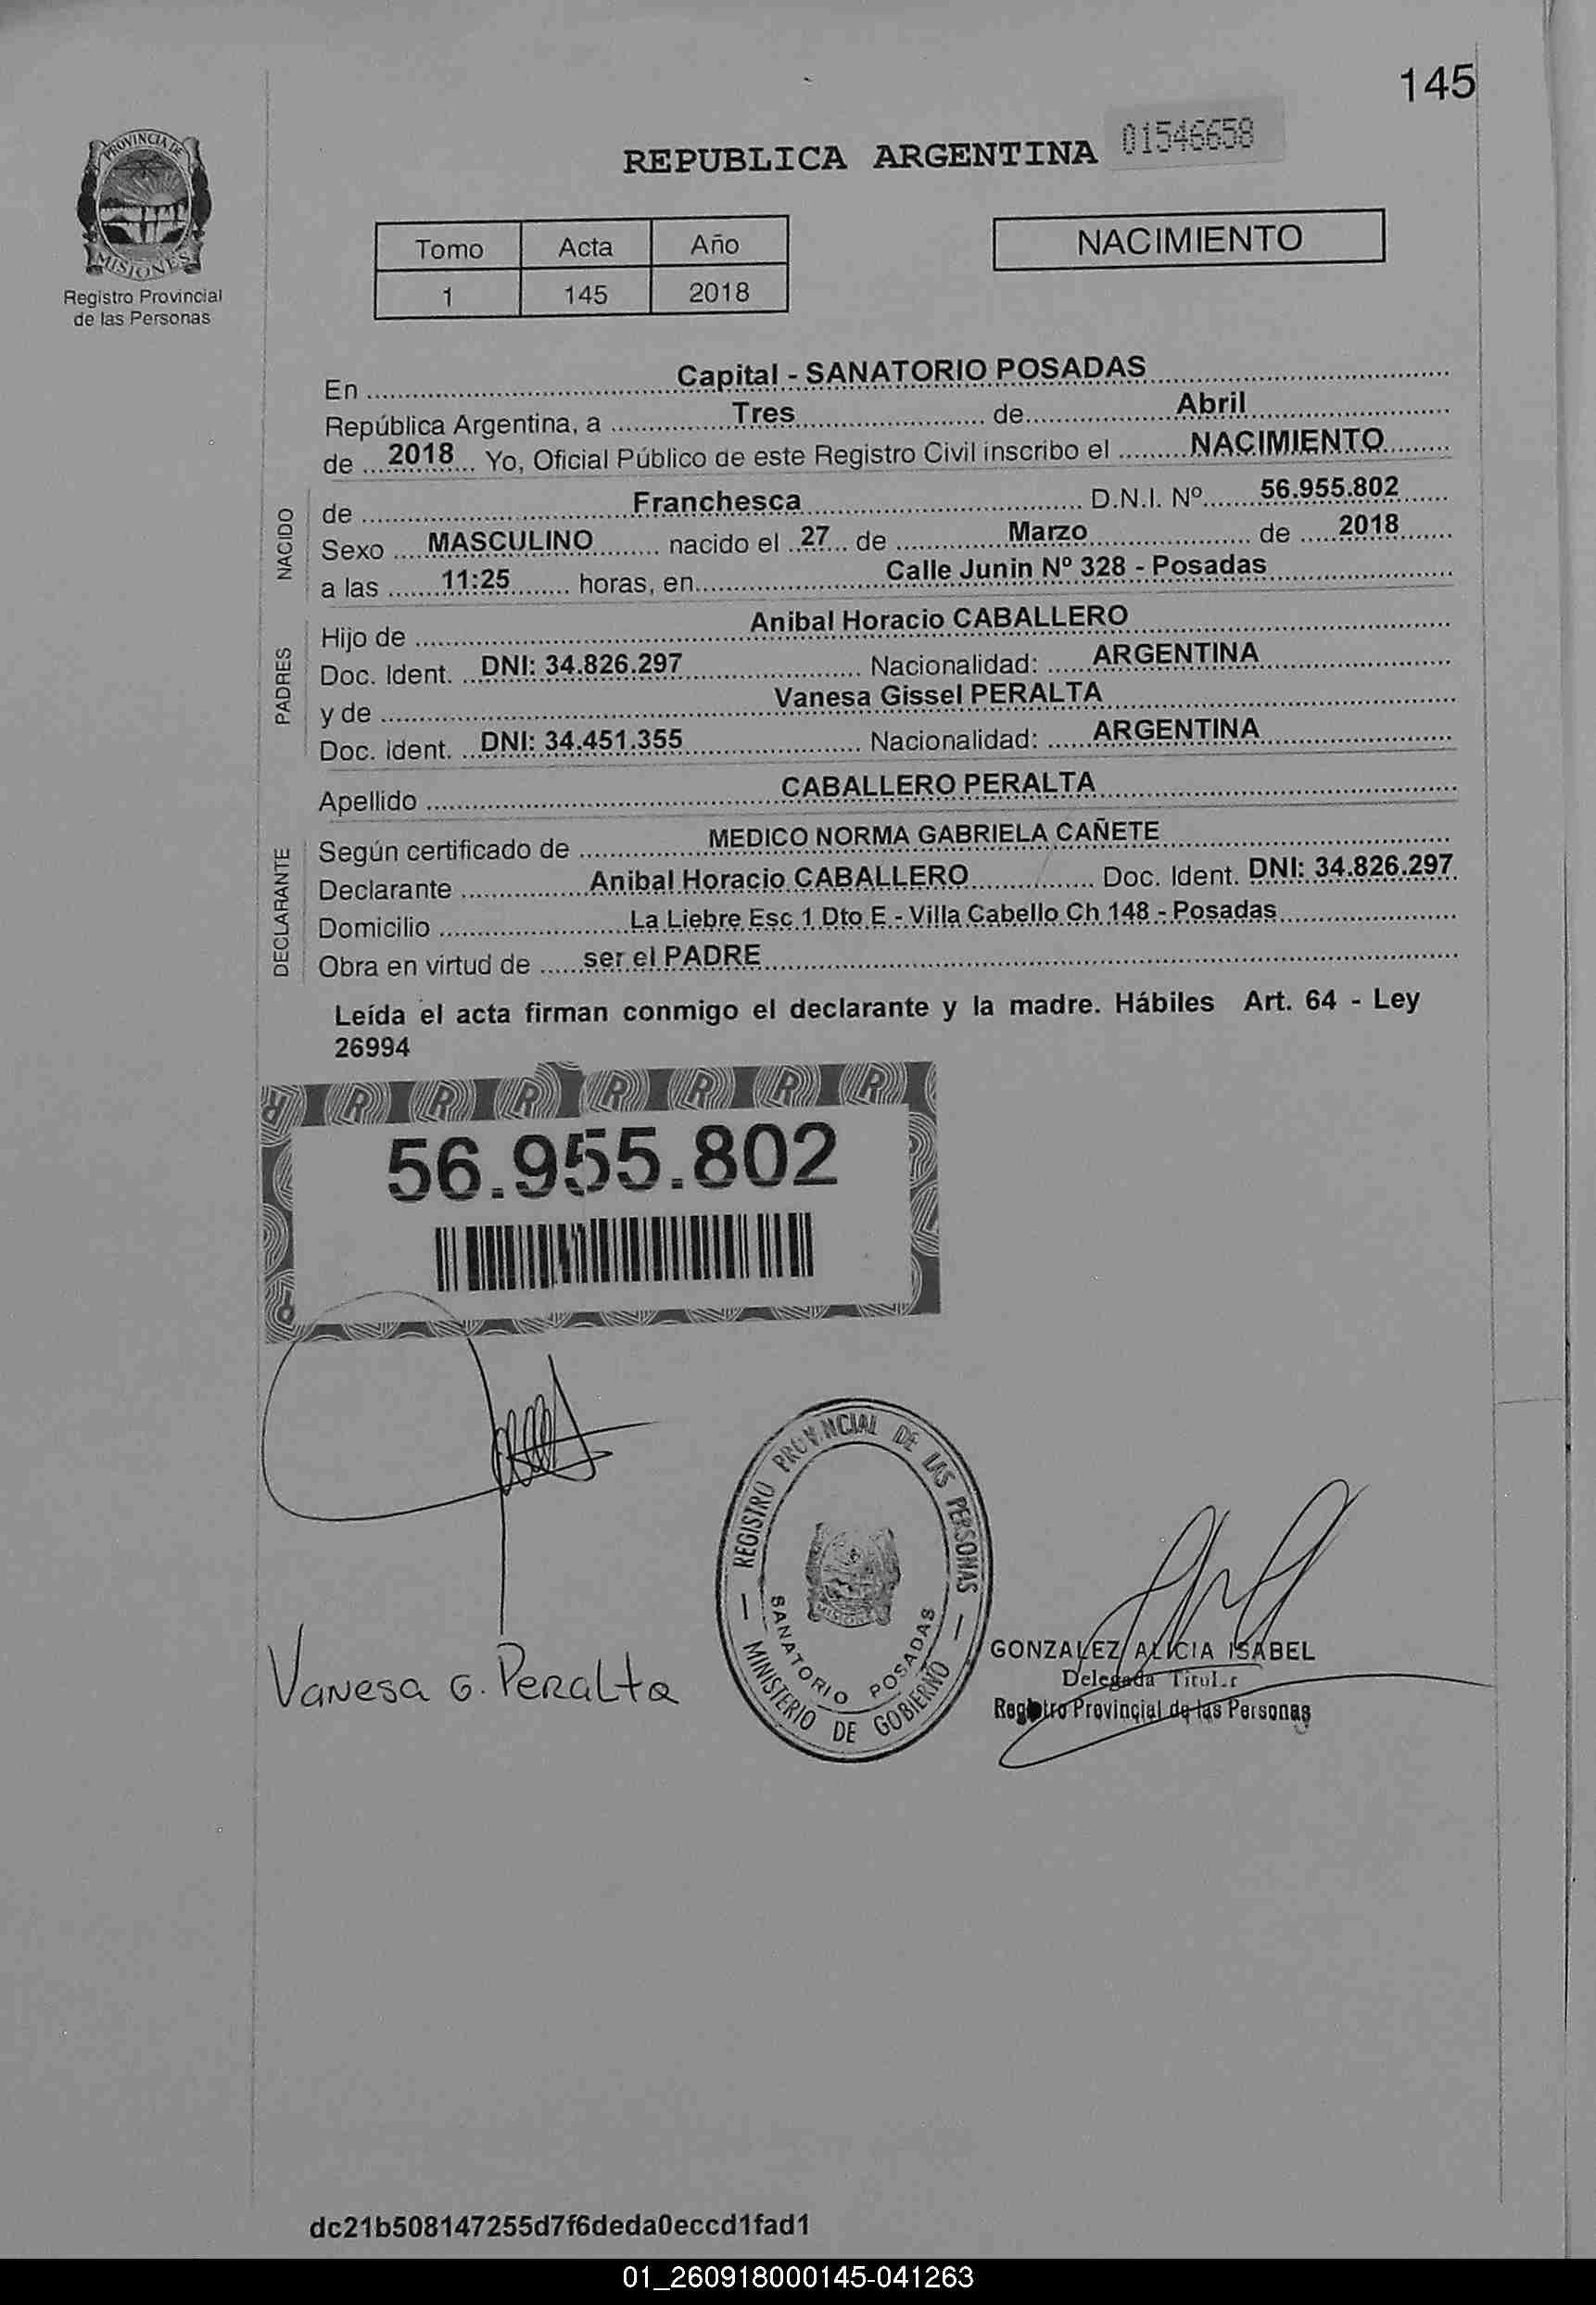 145
PROVINCIA DE
MISIONES
Registro Provincial
de las Personas
REPUBLICA ARGENTINA 01546658
Tomo Acta Año
1 145 2018
NACIMIENTO
En Capital - SANATORIO POSADAS
República Argentina, a Tres de Abril
de 2018 Yo, Oficial Público de este Registro Civil inscribo el NACIMIENTO
NACIDO
de Franchesca D.N.I. Nº 56.955.802
Sexo MASCULINO nacido el 27 de Marzo de 2018
a las 11:25 horas, en Calle Junin Nº 328 - Posadas
PADRES
Hijo de Anibal Horacio CABALLERO
Doc. Ident. DNI: 34.826.297 Nacionalidad: ARGENTINA
y de Vanesa Gissel PERALTA
Doc. Ident. DNI: 34.451.355 Nacionalidad: ARGENTINA
Apellido CABALLERO PERALTA
DECLARANTE
Según certificado de MEDICO NORMA GABRIELA CAÑETE
Declarante Anibal Horacio CABALLERO Doc. Ident. DNI: 34.826.297
Domicilio La Liebre Esc 1 Dto E - Villa Cabello Ch 148 - Posadas
Obra en virtud de ser el PADRE
Leída el acta firman conmigo el declarante y la madre. Hábiles Art. 64 - Ley
26994
R R R R R R R R
56.955.802
REGISTRO PROVINCIAL DE LAS PERSONAS
SANATORIO POSADAS
MINISTERIO DE GOBIERNO
Vanesa G. Peralta
GONZALEZ ALICIA ISABEL
Delegada Titular
Registro Provincial de las Personas
dc21b508147255d7f6deda0eccd1fad1
01_260918000145-041263